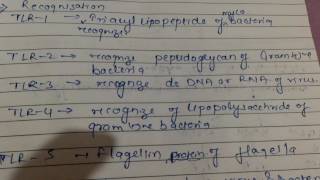 Recognisation
TLR-1 → Triacyl lipopeptide of myco bacteria
recognize
TLR-2 → recognize peptidoglycan of Gram +ve
bacteria
TLR-3 → recognize ds DNA or RNA of virus
TLR-4 → recognize of lipopolysaccharide of
gram -ve bacteria
TLR-5 → Flagellin protein of flagella
bacteria